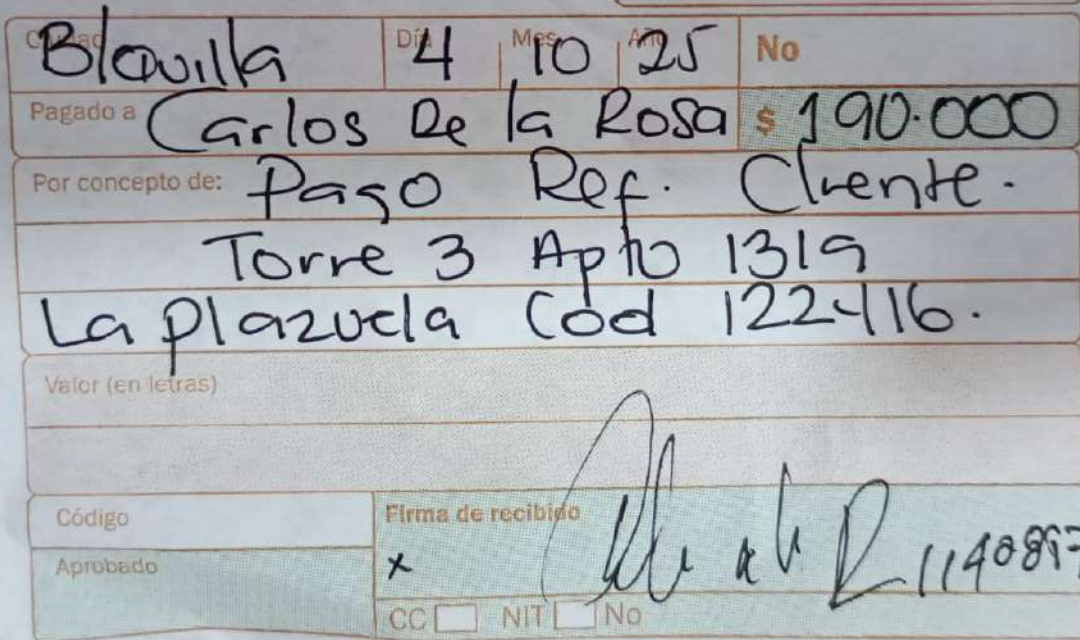 Ciudad Blquilla Día 4 Mes 10 Año 25 No
Pagado a Carlos De la Rosa $ 190.000
Por concepto de: Pago Ref. Cliente.
Torre 3 Apto 1319
La plazuela Cod 122416.
Valor (en letras)
Código Firma de recibido
Aprobado x
CC NIT No